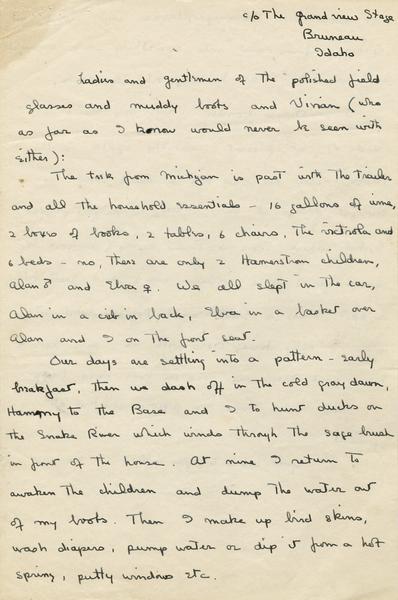 c/o The Grand View Stage
Bruneau
Idaho
Ladies and gentlemen of the polished field
glasses and muddy boots and Vivian (who
as far as I know would never be seen with
either):
The trek from Michigan is past with the trailer
and all the household essentials - 16 gallons of wine,
2 boxes of books, 2 tables, 6 chairs, the victrola and
6 beds - no, there are only 2 Hamerstrom children,
Alan ♂ and Elva ♀. We all slept in the car,
Alan in a crib in back, Elva in a basket over
Alan and I on the front seat.
Our days are settling into a pattern - early
breakfast, then we dash off in the cold gray dawn,
Hammy to the Base and I to hunt ducks on
the Snake River which winds through the sage brush
in front of the house. At nine I return to
awaken the children and dump the water out
of my boots. Then I make up bird skins,
wash diapers, pump water or dip it from a hot
spring, putty windows etc.